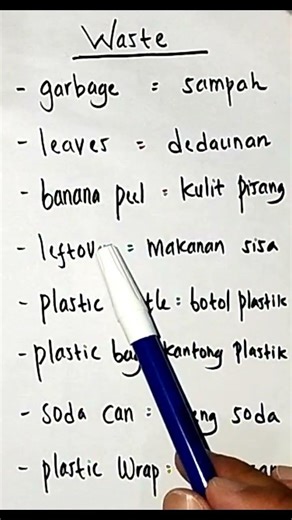 Waste
- garbage = sampah
- leaves = dedaunan
- banana peel = kulit pisang
- leftover = makanan sisa
- plastic = botol plastik
- plastic bag kantong plastik
- soda can = soda
- plastic wrap =